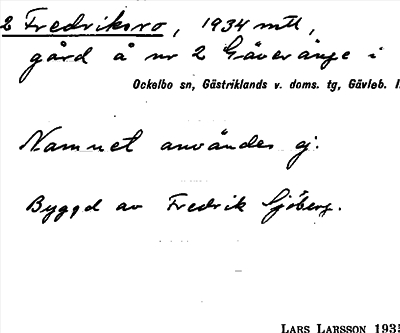 2 Fredriksro, 1934 mtl,
gård å nr 2 Gäveränge i
Ockelbo sn, Gästriklands v. doms. tg, Gävleb. l.
Namnet användes ej.
Byggd av Fredrik Sjöberg.
LARS LARSSON 1935